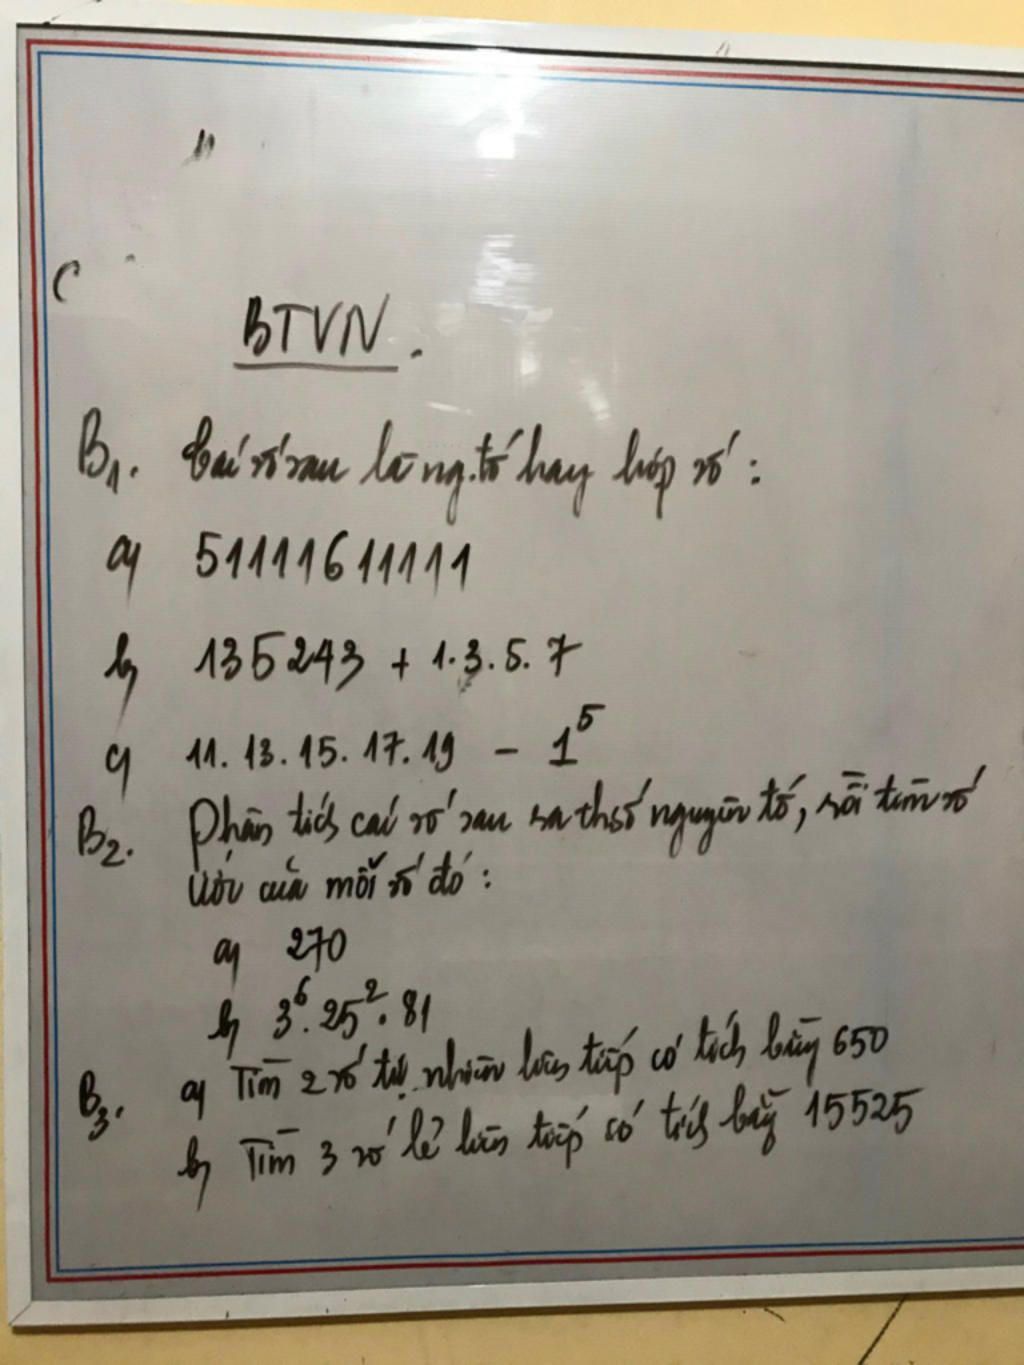 BTVN.
B1. Các số sau là ng.tố hay hợp số :
a) 51111611111
b) 135243 + 1.3.5.7
c) 11.13.15.17.19 - 1⁵
B2. Phân tích các số sau ra thsố nguyên tố, rồi tìm số
ước của mỗi số đó :
a) 270
b) 3⁶.25².81
B3. a) Tìm 2 số tự nhiên liên tiếp có tích bằng 650
b) Tìm 3 số lẻ liên tiếp có tích bằng 15525